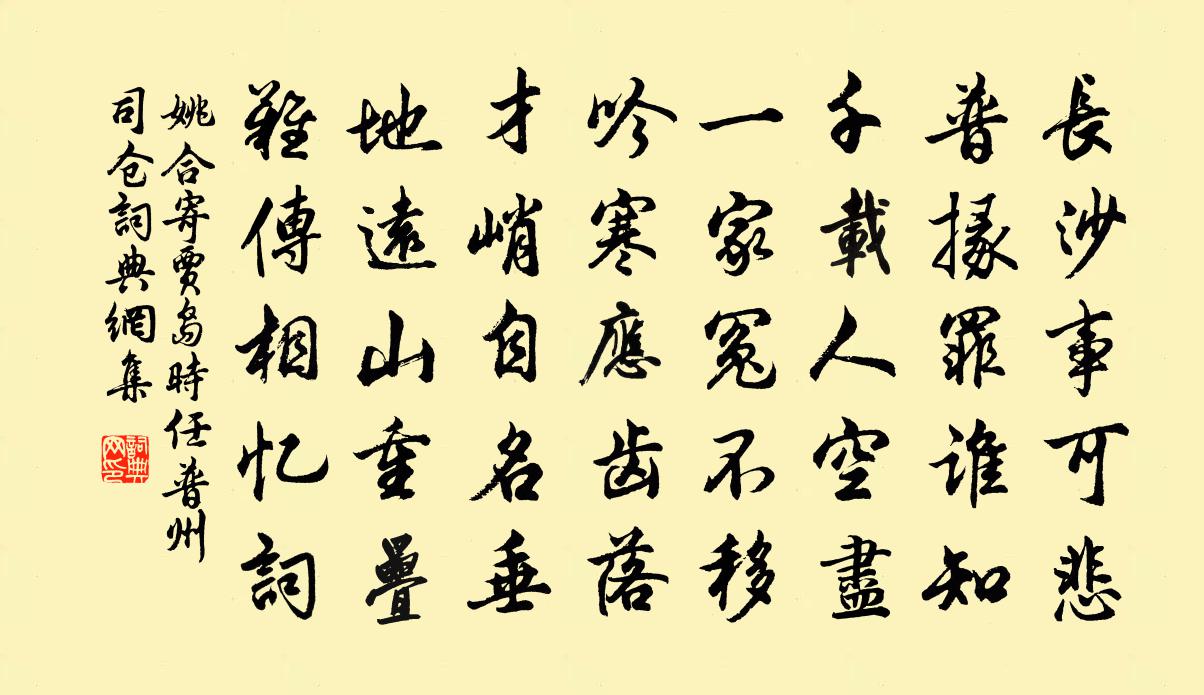 長沙事可悲
普掾罪誰知
千載人空盡
一家冤不移
吟寒應齿落
才峭自名垂
地遠山重疊
難傳相忆詞
姚合寄賈島時任普州
司仓詞典網集
詞典网印